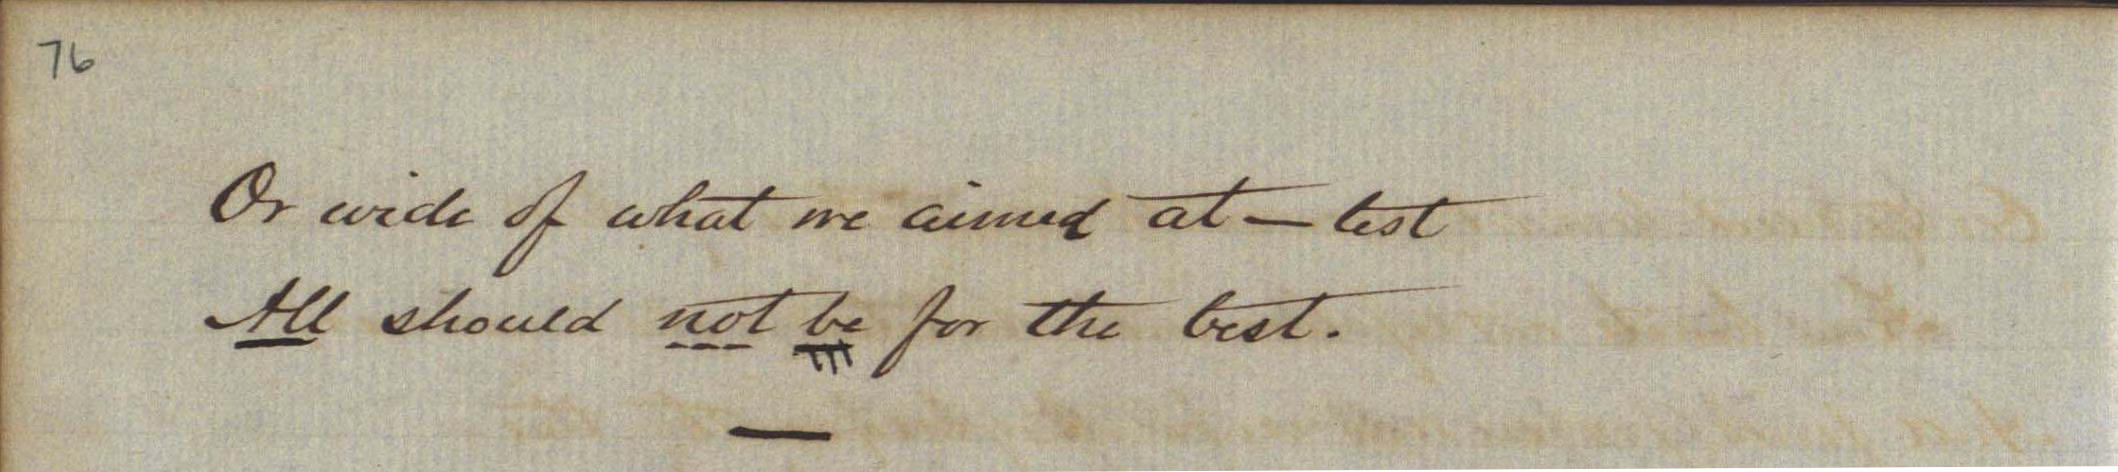 76
Or wide of what we aimed at — lest
All should not be for the best.